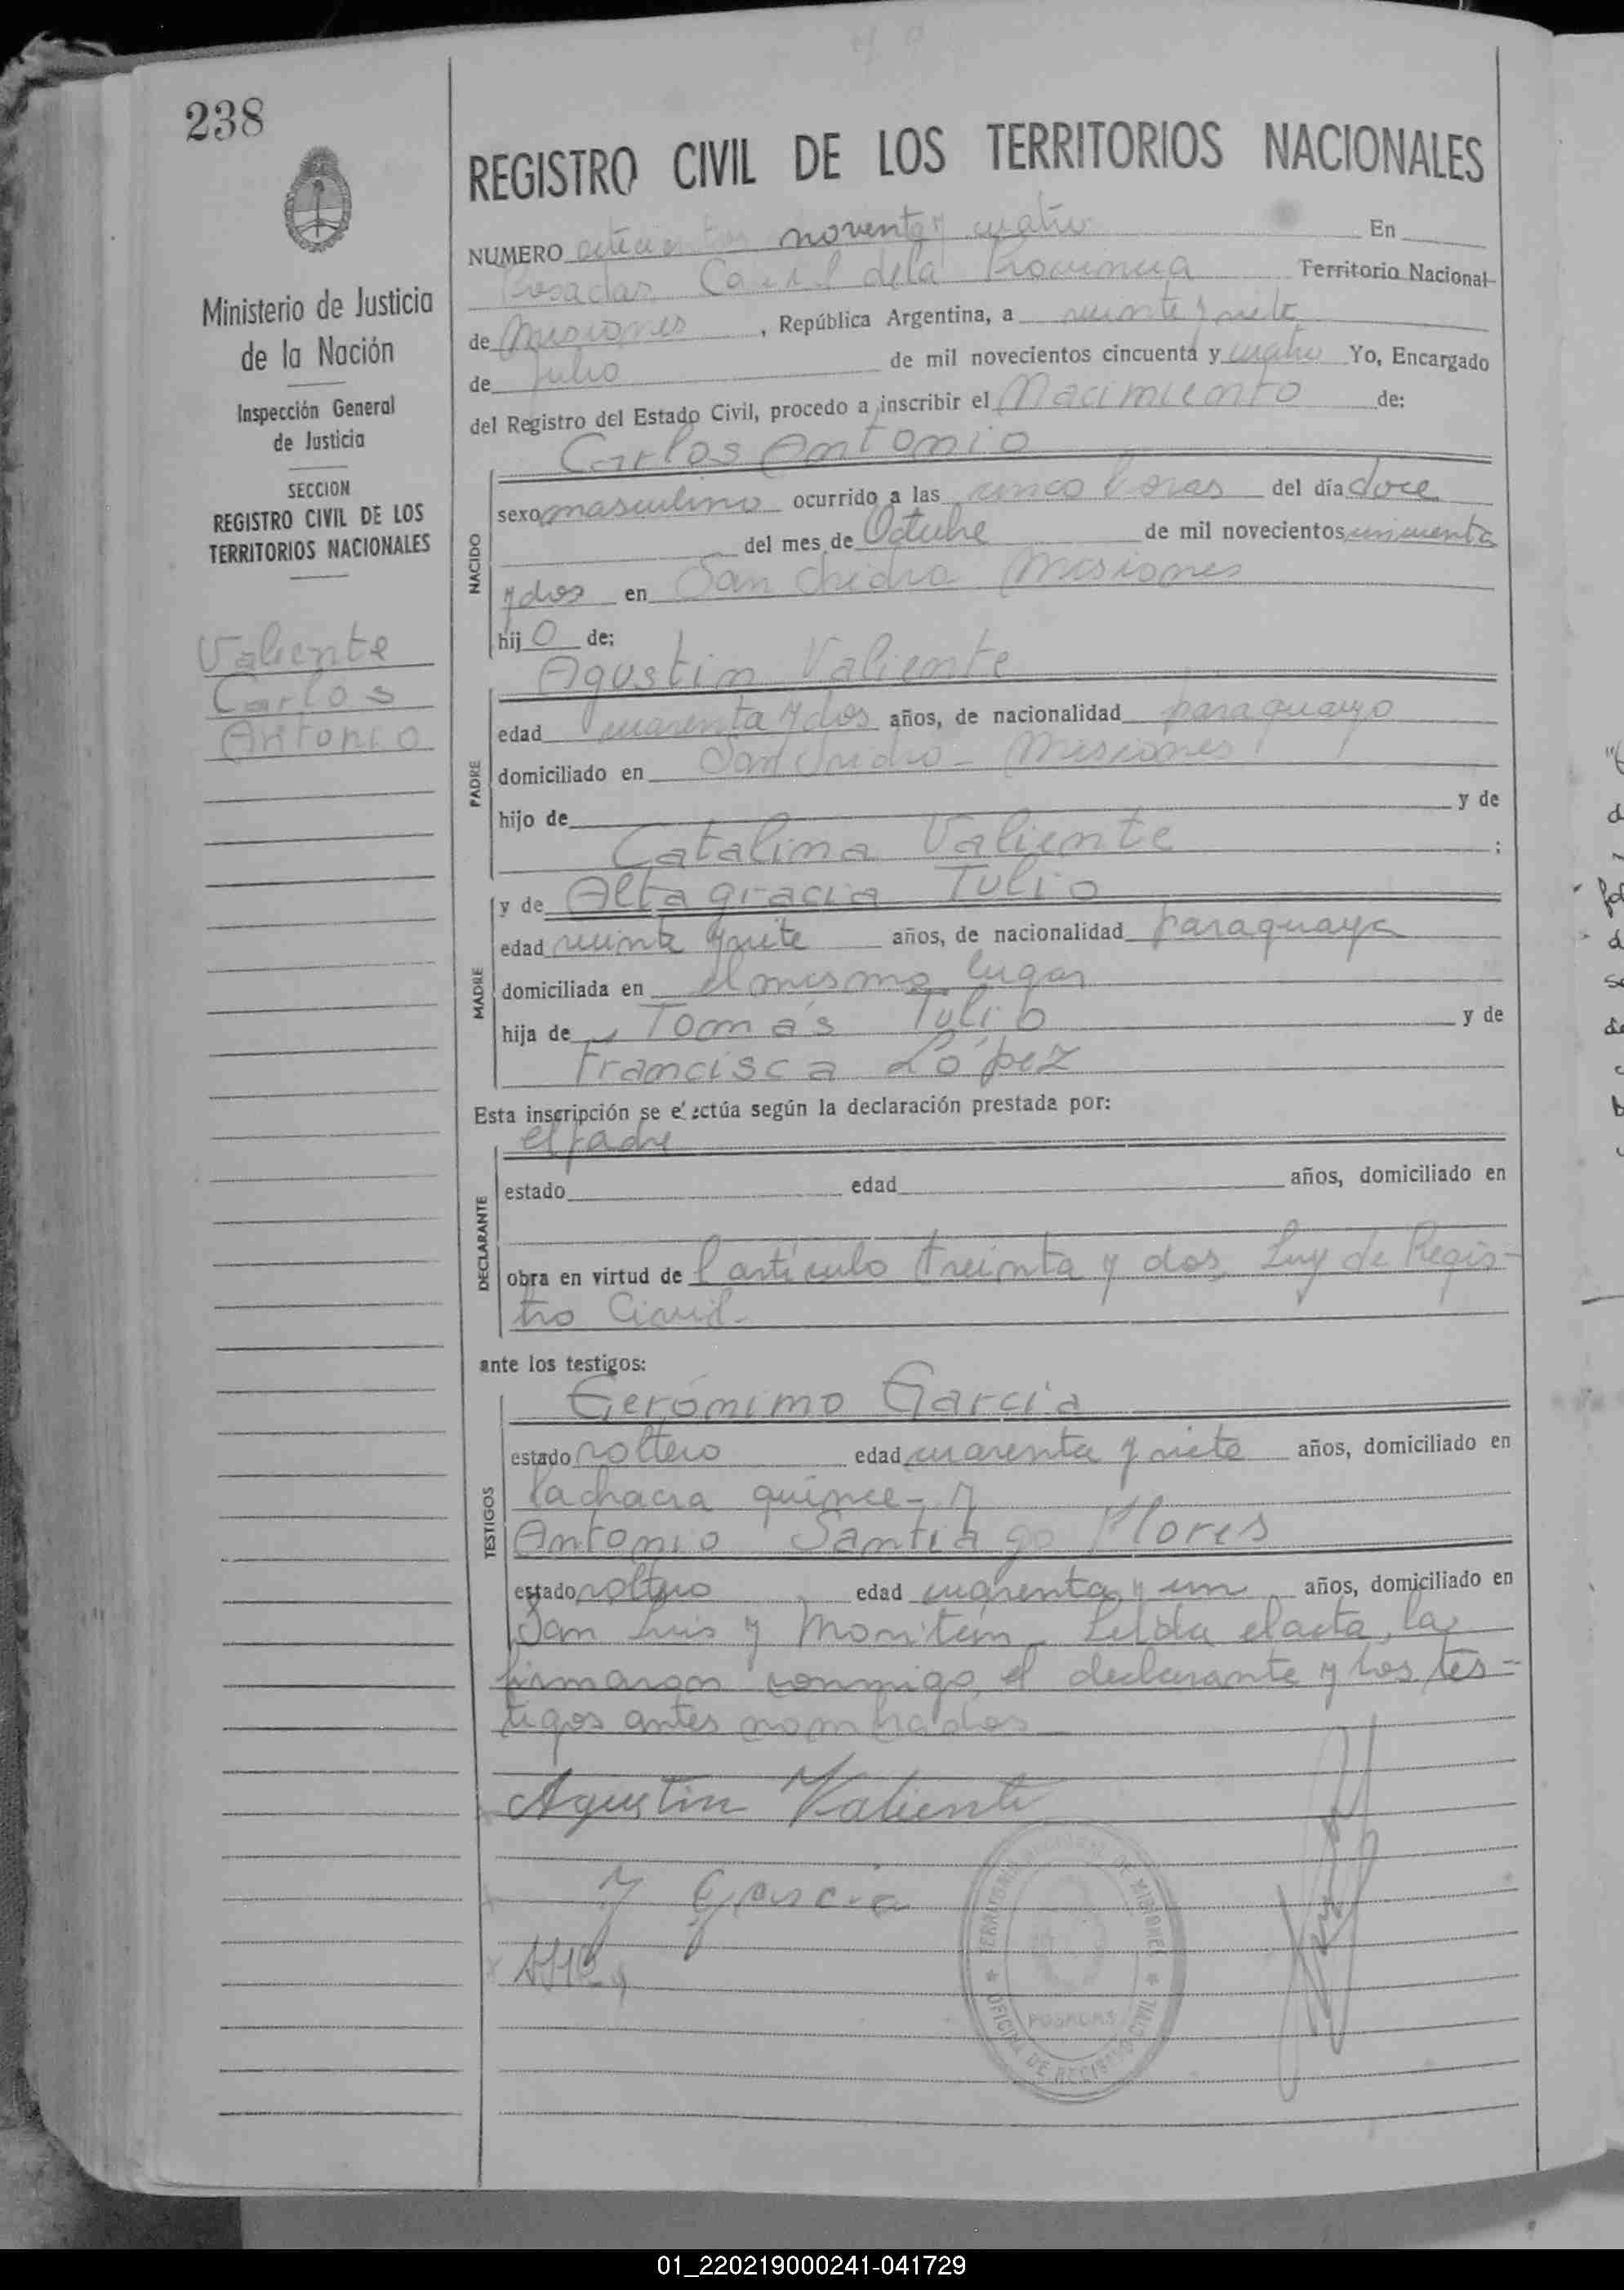 238
REGISTRO CIVIL DE LOS TERRITORIOS NACIONALES
Ministerio de Justicia
de la Nación
Inspección General
de Justicia
SECCION
REGISTRO CIVIL DE LOS
TERRITORIOS NACIONALES
Valiente
Carlos
Antonio
NUMERO noventa y cuatro En
Posadas de la Provincia Territorio Nacional
de Misiones , República Argentina, a veinte y siete
de Julio de mil novecientos cincuenta y cuatro Yo, Encargado
del Registro del Estado Civil, procedo a inscribir el Nacimiento de:
NACIDO
Carlos Antonio
sexo masculino ocurrido a las cinco horas del día doce
del mes de Octubre de mil novecientos cincuenta
y dos en San Isidro Misiones
hij o de:
PADRE
Agustin Valiente
edad cuarenta y dos años, de nacionalidad paraguayo
domiciliado en San Isidro - Misiones
hijo de y de
Catalina Valiente ;
MADRE
y de Altagracia Tulio
edad veinte y siete años, de nacionalidad paraguaya
domiciliada en el mismo lugar
hija de Tomás Tulio y de
Francisca López
Esta inscripción se efectúa según la declaración prestada por:
DECLARANTE
el padre
estado edad años, domiciliado en
obra en virtud de l artículo treinta y dos, Ley de Regis-
tro Civil.
ante los testigos:
TESTIGOS
Gerónimo García
estado soltero edad cuarenta y siete años, domiciliado en
la chacra quince - y
Antonio Santiago Flores
estado soltero edad cuarenta y un años, domiciliado en
San Luis y Leída el acta, la
firmaron conmigo, el declarante y los tes-
tigos antes nombrados
Agustin Valiente
J Garcia
TERRITORIO NACIONAL DE MISIONES
POSADAS
OFICINA DE REGISTRO CIVIL
01_220219000241-041729